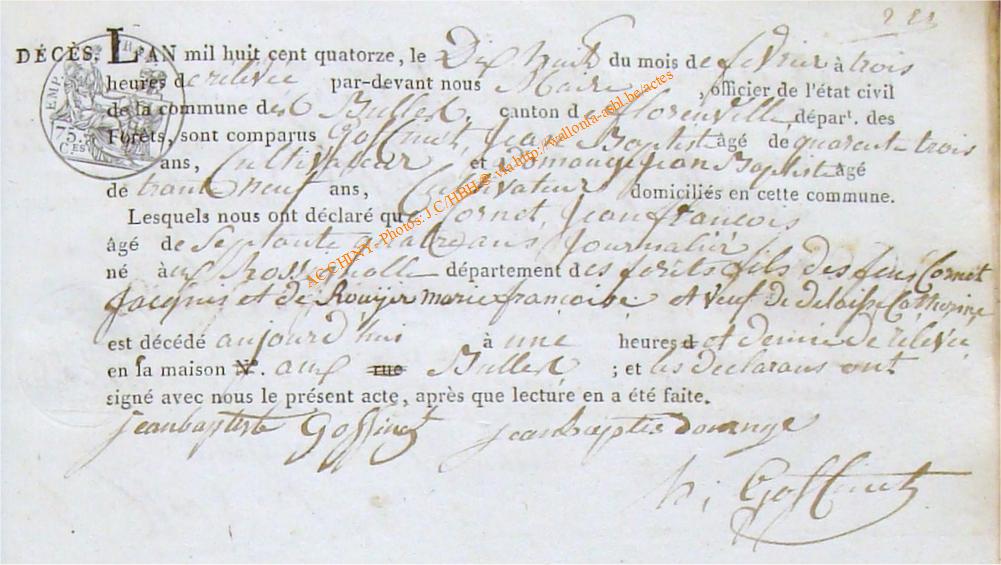 DÉCÈS. L'AN mil huit cent quatorze, le Dix huit du mois de fevrier à trois
heures de relevée par-devant nous Maire, officier de l'état civil
de la commune des Bulles, canton de florenville, départ. des
Forêts, sont comparus Goffinet Jean Baptiste âgé de quarente trois
ans, Cultivateur et Domange Jean Baptiste âgé
de trante neuf ans, Cultivateur domiciliés en cette commune.
Lesquels nous ont déclaré que Cornet, Jean françois
âgé de Septante quatre ans, Journalier
né à Rossignolle département des forêts fils des feus Cornet
Jacques et de Rouyer marie françoise et veuf de Catherine
est décédé aujourd'hui à une heures et demie de relevée
en sa maison N°. aux rue Bulles ; et les déclarans ont
signé avec nous le présent acte, après que lecture en a été faite.
jeanbaptiste Goffinet jeanbaptis domange
Goffinet
EMP.
75.
C.ES
ACCHINY - Photos: J.C/HBH@ - via http://wallonia-asbl.be/actes